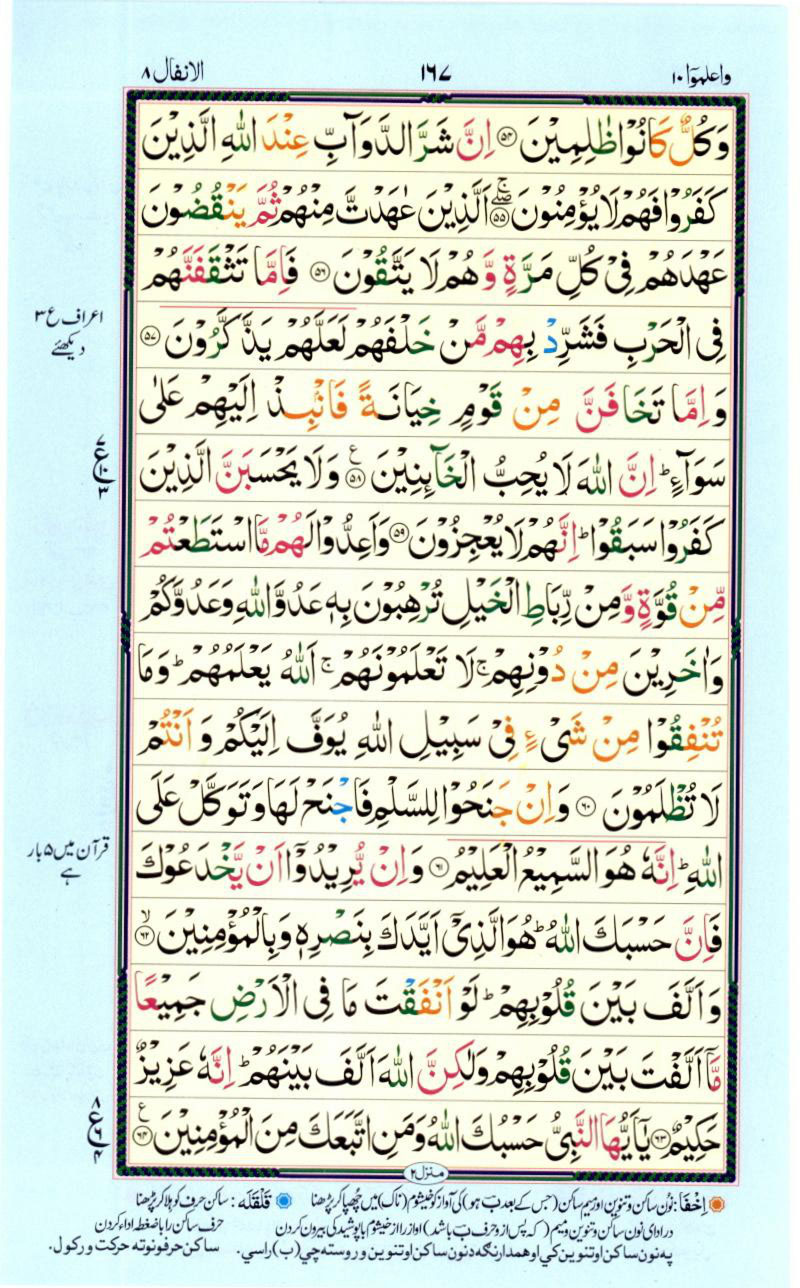 واعلموا ۱۰
۱۶۷
الانفال ۸
وَكُلٌّ كَانُوْا ظٰلِمِيْنَ ۝۵۴ اِنَّ شَرَّ الدَّوَآبِّ عِنْدَ اللّٰهِ الَّذِيْنَ
كَفَرُوْا فَهُمْ لَا يُؤْمِنُوْنَ ۝۵۵ۖۚ اَلَّذِيْنَ عٰهَدْتَّ مِنْهُمْ ثُمَّ يَنْقُضُوْنَ
عَهْدَهُمْ فِيْ كُلِّ مَرَّةٍ وَّهُمْ لَا يَتَّقُوْنَ ۝۵۶ فَاِمَّا تَثْقَفَنَّهُمْ
فِي الْحَرْبِ فَشَرِّدْ بِهِمْ مَّنْ خَلْفَهُمْ لَعَلَّهُمْ يَذَّكَّرُوْنَ ۝۵۷
اعراف ع ۳
دیکھئے
وَاِمَّا تَخَافَنَّ مِنْ قَوْمٍ خِيَانَةً فَانْۢبِذْ اِلَيْهِمْ عَلٰى
سَوَآءٍ ؕ اِنَّ اللّٰهَ لَا يُحِبُّ الْخَآئِنِيْنَ ۝۵۸ ع وَلَا يَحْسَبَنَّ الَّذِيْنَ
۷
ع
۳
كَفَرُوْا سَبَقُوْا ؕ اِنَّهُمْ لَا يُعْجِزُوْنَ ۝۵۹ وَاَعِدُّوْا لَهُمْ مَّا اسْتَطَعْتُمْ
مِّنْ قُوَّةٍ وَّمِنْ رِّبَاطِ الْخَيْلِ تُرْهِبُوْنَ بِهٖ عَدُوَّ اللّٰهِ وَعَدُوَّكُمْ
وَاٰخَرِيْنَ مِنْ دُوْنِهِمْ ۚ لَا تَعْلَمُوْنَهُمْ ۚ اَللّٰهُ يَعْلَمُهُمْ ؕ وَمَا
تُنْفِقُوْا مِنْ شَيْءٍ فِيْ سَبِيْلِ اللّٰهِ يُوَفَّ اِلَيْكُمْ وَاَنْتُمْ
لَا تُظْلَمُوْنَ ۝۶۰ وَاِنْ جَنَحُوْا لِلسَّلْمِ فَاجْنَحْ لَهَا وَتَوَكَّلْ عَلَى
اللّٰهِ ؕ اِنَّهٗ هُوَ السَّمِيْعُ الْعَلِيْمُ ۝۶۱ وَاِنْ يُّرِيْدُوْٓا اَنْ يَّخْدَعُوْكَ
قرآن میں ۵ بار
ہے
فَاِنَّ حَسْبَكَ اللّٰهُ ؕ هُوَ الَّذِيْٓ اَيَّدَكَ بِنَصْرِهٖ وَبِالْمُؤْمِنِيْنَ ۝۶۲ۙ
وَاَلَّفَ بَيْنَ قُلُوْبِهِمْ ؕ لَوْ اَنْفَقْتَ مَا فِي الْاَرْضِ جَمِيْعًا
مَّآ اَلَّفْتَ بَيْنَ قُلُوْبِهِمْ وَلٰكِنَّ اللّٰهَ اَلَّفَ بَيْنَهُمْ ؕ اِنَّهٗ عَزِيْزٌ
حَكِيْمٌ ۝۶۳ يٰٓاَيُّهَا النَّبِيُّ حَسْبُكَ اللّٰهُ وَمَنِ اتَّبَعَكَ مِنَ الْمُؤْمِنِيْنَ ۝۶۴ ع
۸
ع
۴
منزل ۲
اِخْفَا: نُون ساکن و تنوین اور میم ساکن (جس کے بعد ب ہو) کی آواز کو خیشوم (ناک) میں چُھپا کر پڑھنا قَلْقَلَه: ساکن حرف کو ہلا کر پڑھنا
در ادای نون ساکن و تنوین و میم (که پس از و حرف ب باشد) اواز را از خیشوم با پوشید گی بیرون کردن حرف ساکن را با ضغطه اداء کردن
په نون ساکن او تنوین کی او همدارنگه د نون ساکن او تنوین وروسته چی (ب) راسي. ساکن حرفو نو ته حرکت ورکول.